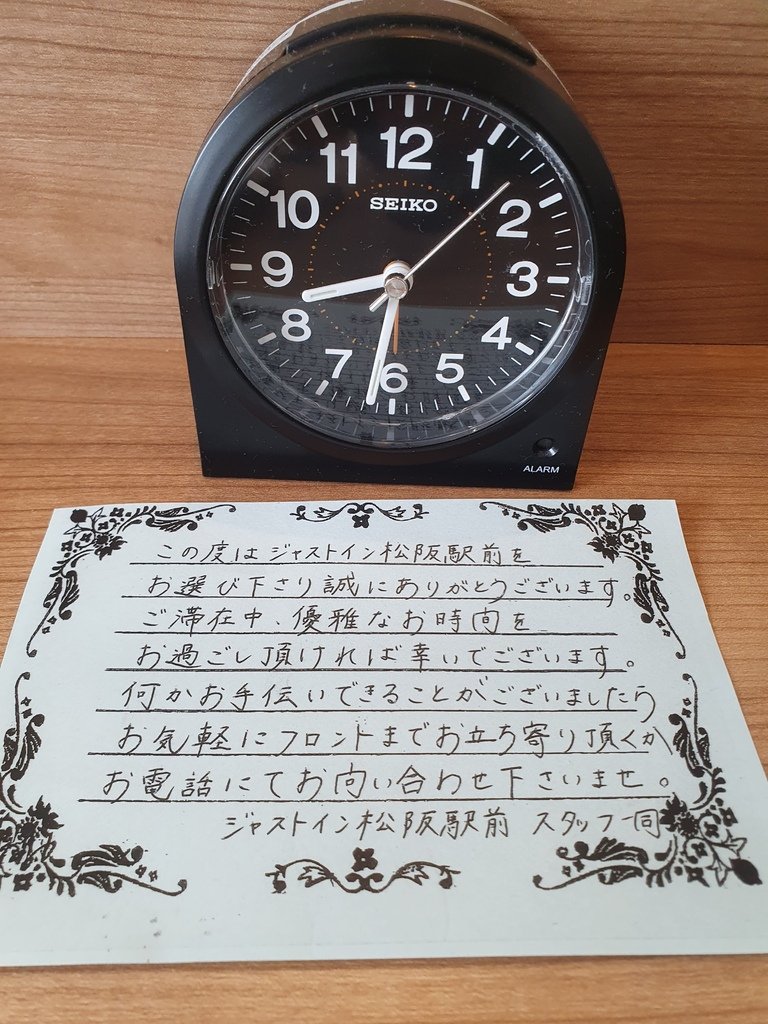 12
11
1
10
SEIKO
2
9
3
8
4
7
5
6
ALARM
この度はジャストイン松阪駅前を
お選び下さり誠にありがとうございます。
ご滞在中、優雅なお時間を
お過ごし頂ければ幸いでございます。
何かお手伝いできることがございましたら
お気軽にフロントまでお立ち寄り頂くか
お電話にてお問い合わせ下さいませ。
ジャストイン松阪駅前 スタッフ一同